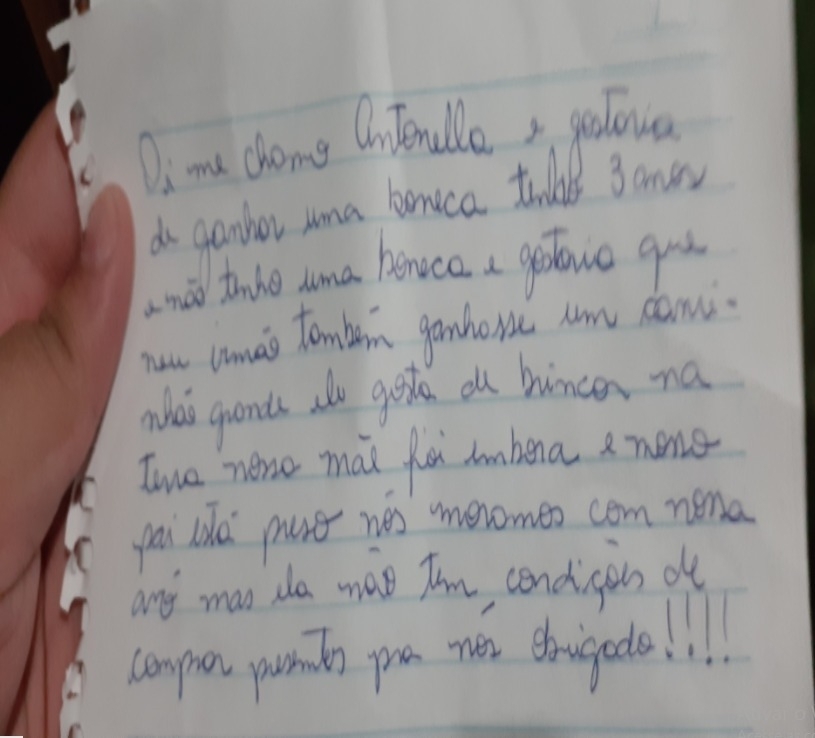 Oi me chamo Antonella e gostaria
de ganhar uma boneca tenho 3 anos
e não tenho uma boneca e gostaria que
meu irmão também ganhasse um cami-
nhão grande ele gosta de brincar na
terra nossa mãe foi embora e nosso
pai está preso nós moramos com nossa
avó mas ela não tem condições de
comprar presentes pra nós obrigado!!!!